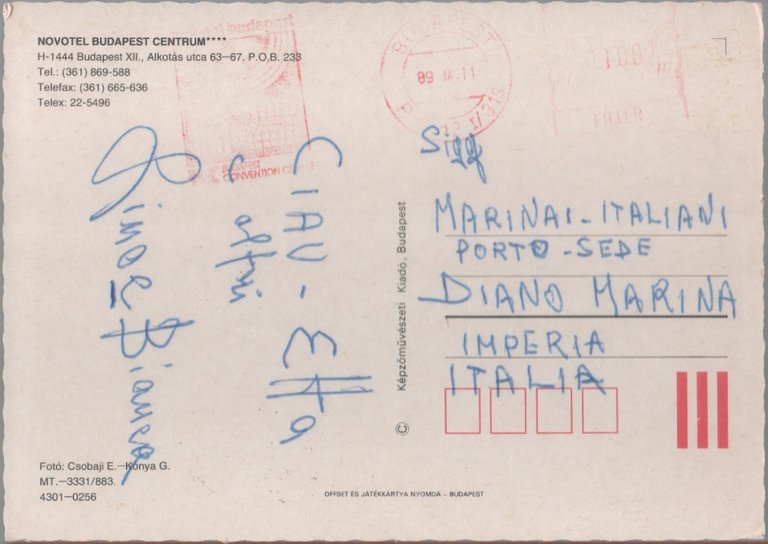 NOVOTEL BUDAPEST CENTRUM****
H-1444 Budapest XII., Alkotás utca 63–67. P.O.B. 233
Tel.: (361) 869-588
Telefax: (361) 665-636
Telex: 22-5496
BUDAPEST
CONVENTION
BUDAPEST
FILLER
CIAU - Etta
e altri
Bianca
Sigg
MARINAI - ITALIANI
PORTO - SEDE
DIANO MARINA
IMPERIA
ITALIA
© Képzőművészeti Kiadó, Budapest
Fotó: Csobaji E.–Kónya G.
MT.–3331/883.
4301–0256
OFFSET ÉS JÁTÉKKARTYA NYOMDA – BUDAPEST